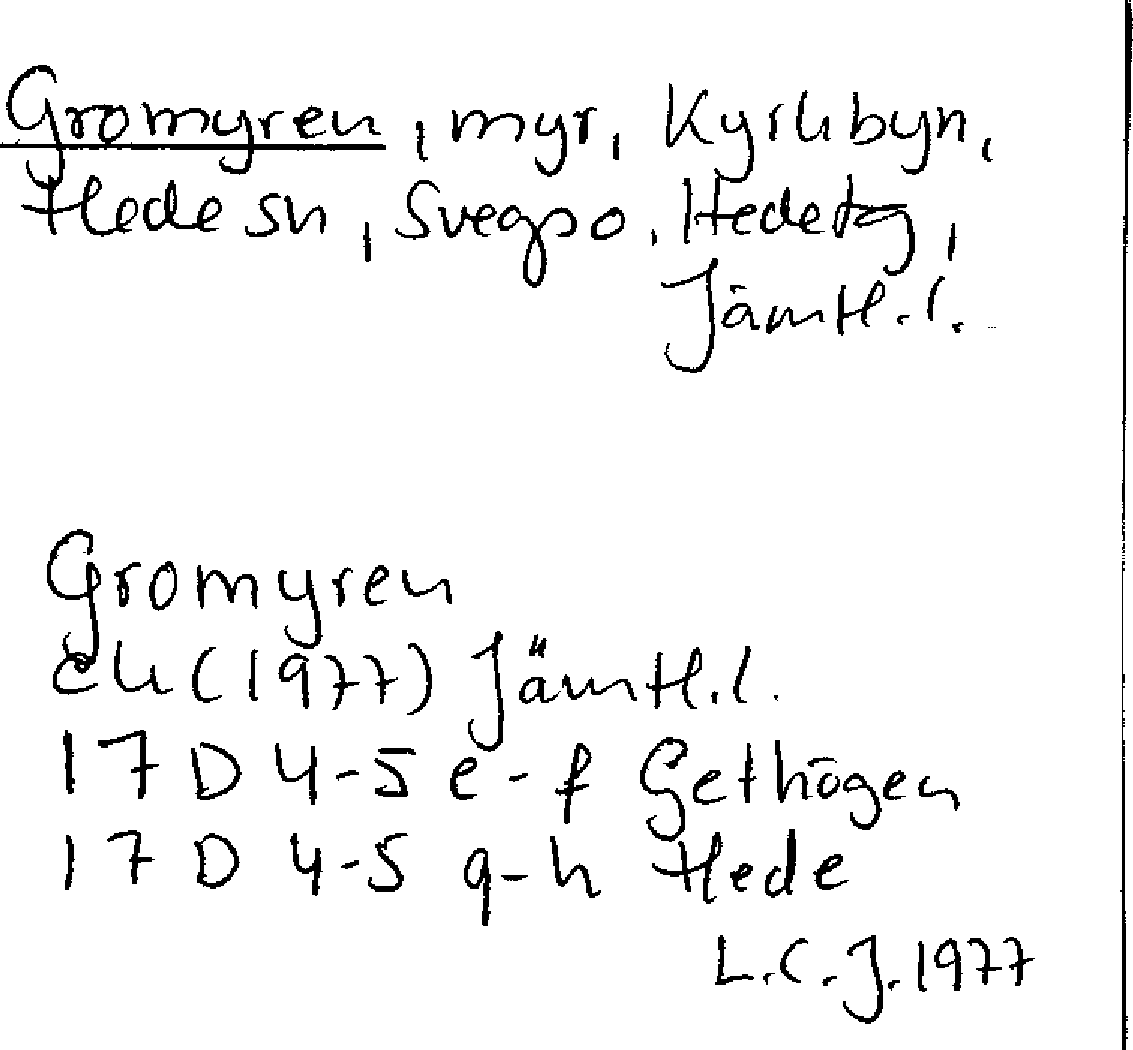 Gromyren, myr, Kyrkbyn,
Hede sn, Svegpo, Hedetg,
Jämtl.l.
Gromyren
ek (1977) Jämtl.l.
17 D 4-5 e-f Gethögen
17 D 4-5 g-h Hede
L.C.J. 1977